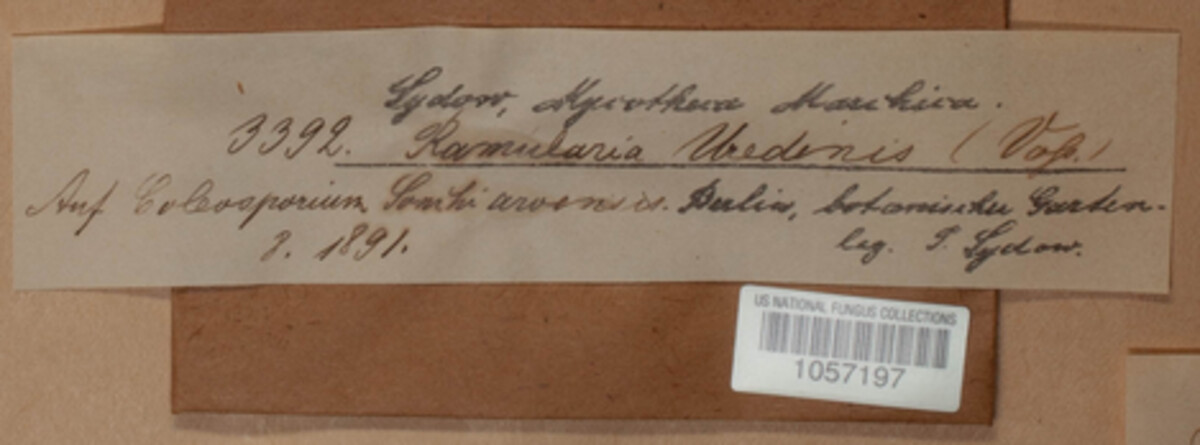 Sydow, Mycotheca Marchica.
3392. Ramularia Uredinis (Voß.)
Auf Coleosporium Sonchi arvensis. Berlin, botanischer Garten.
8. 1891.
leg. P. Sydow.
US NATIONAL FUNGUS COLLECTIONS
1057197